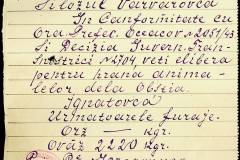 Silozul Varvarovca
In Conformitate cu
Ord. Prefec. Oceacov № 2051/43
Si Decizia Guvern. Tran-
snistriei № 4704, veti elibera
pentru hrana anima-
lelor dela Obștia
Ignatovca
Urmatoarele furaje.
Orz — kgr.
Ovăz 2220 kgr.